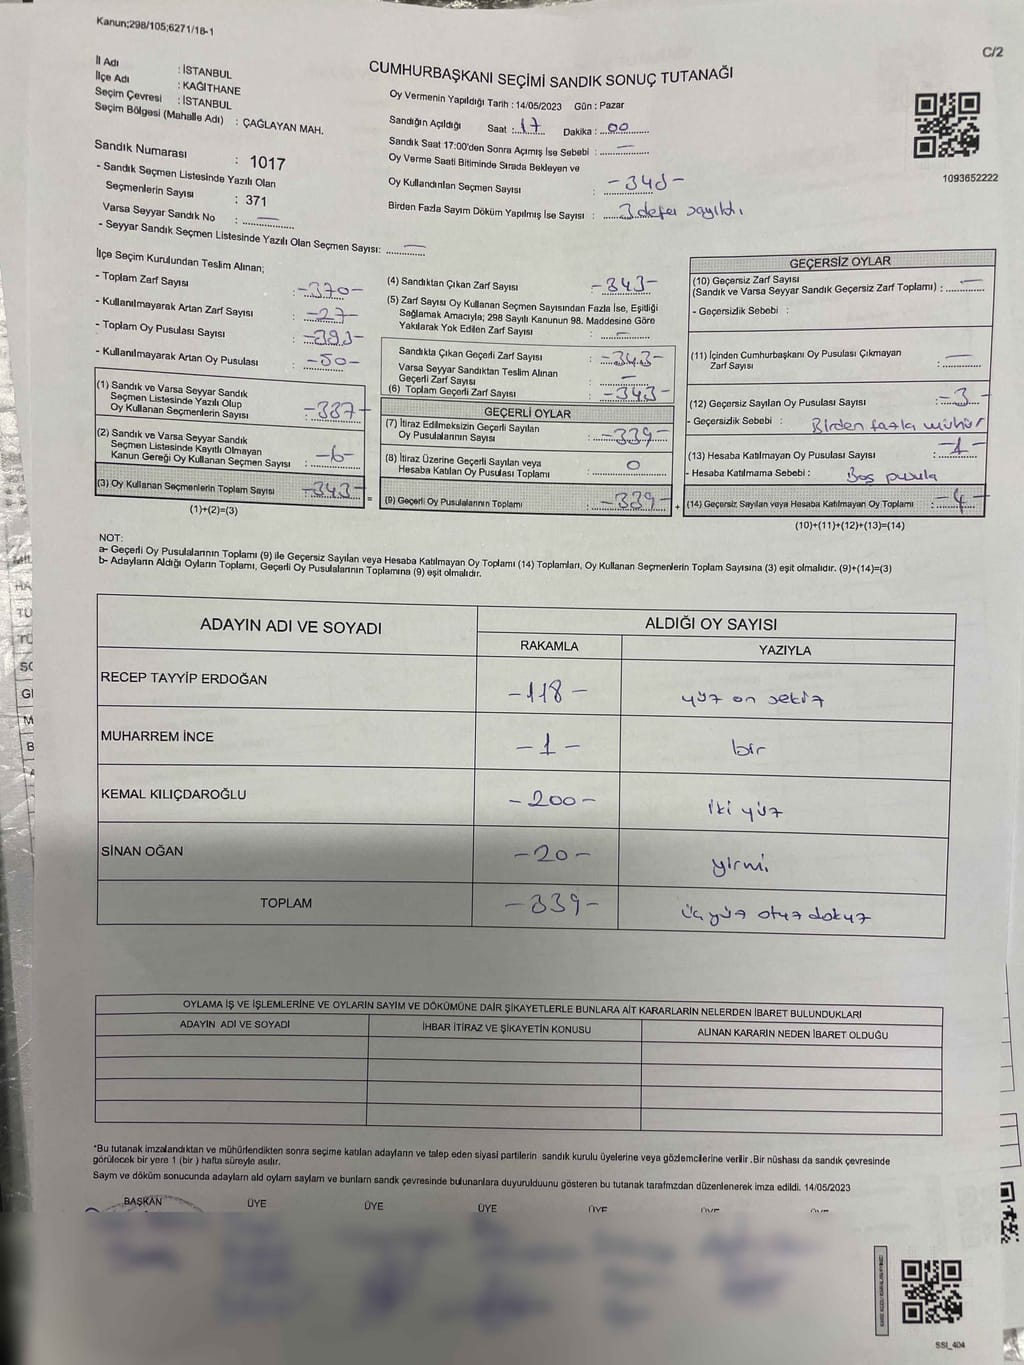 Kanun;298/105;6271/18-1
C/2
İl Adı : İSTANBUL
İlçe Adı : KAĞITHANE
Seçim Çevresi : İSTANBUL
Seçim Bölgesi (Mahalle Adı) : ÇAĞLAYAN MAH.
CUMHURBAŞKANI SEÇİMİ SANDIK SONUÇ TUTANAĞI
Oy Vermenin Yapıldığı Tarih : 14/05/2023 Gün : Pazar
Sandığın Açıldığı Saat : 17 Dakika : 00
Sandık Saat 17:00'den Sonra Açımış İse Sebebi : —
Oy Verme Saati Bitiminde Sırada Bekleyen ve
Oy Kullandırılan Seçmen Sayısı :
Birden Fazla Sayım Döküm Yapılmış İse Sayısı : 3 defa sayıldı
1093652222
Sandık Numarası : 1017
- Sandık Seçmen Listesinde Yazılı Olan
Seçmenlerin Sayısı : 371
Varsa Seyyar Sandık No : —
- Seyyar Sandık Seçmen Listesinde Yazılı Olan Seçmen Sayısı: —
İlçe Seçim Kurulundan Teslim Alınan;
- Toplam Zarf Sayısı : -370-
- Kullanılmayarak Artan Zarf Sayısı : -27-
- Toplam Oy Pusulası Sayısı :
- Kullanılmayarak Artan Oy Pusulası : -50-
(1) Sandık ve Varsa Seyyar Sandık
Seçmen Listesinde Yazılı Olup
Oy Kullanan Seçmenlerin Sayısı : -337-
(2) Sandık ve Varsa Seyyar Sandık
Seçmen Listesinde Kayıtlı Olmayan
Kanun Gereği Oy Kullanan Seçmen Sayısı : -6-
(3) Oy Kullanan Seçmenlerin Toplam Sayısı : -343-
(1)+(2)=(3)
(4) Sandıktan Çıkan Zarf Sayısı : -343-
(5) Zarf Sayısı Oy Kullanan Seçmen Sayısından Fazla İse, Eşitliği
Sağlamak Amacıyla; 298 Sayılı Kanunun 98. Maddesine Göre
Yakılarak Yok Edilen Zarf Sayısı : —
Sandıkta Çıkan Geçerli Zarf Sayısı : -343-
Varsa Seyyar Sandıktan Teslim Alınan
Geçerli Zarf Sayısı : —
(6) Toplam Geçerli Zarf Sayısı : -343-
GEÇERLİ OYLAR
(7) İtiraz Edilmeksizin Geçerli Sayılan
Oy Pusulalarının Sayısı : -339-
(8) İtiraz Üzerine Geçerli Sayılan veya
Hesaba Katılan Oy Pusulası Toplamı : 0
= (9) Geçerli Oy Pusulalarının Toplamı : -339- +
GEÇERSİZ OYLAR
(10) Geçersiz Zarf Sayısı
(Sandık ve Varsa Seyyar Sandık Geçersiz Zarf Toplamı) : —
- Geçersizlik Sebebi :
(11) İçinden Cumhurbaşkanı Oy Pusulası Çıkmayan
Zarf Sayısı : —
(12) Geçersiz Sayılan Oy Pusulası Sayısı : -3-
- Geçersizlik Sebebi : Birden fazla mühür
(13) Hesaba Katılmayan Oy Pusulası Sayısı : -1-
- Hesaba Katılmama Sebebi : Boş pusula
(14) Geçersiz Sayılan veya Hesaba Katılmayan Oy Toplamı : -4-
(10)+(11)+(12)+(13)=(14)
NOT:
a- Geçerli Oy Pusulalarının Toplamı (9) ile Geçersiz Sayılan veya Hesaba Katılmayan Oy Toplamı (14) Toplamları, Oy Kullanan Seçmenlerin Toplam Sayısına (3) eşit olmalıdır. (9)+(14)=(3)
b- Adayların Aldığı Oyların Toplamı, Geçerli Oy Pusulalarının Toplamına (9) eşit olmalıdır.
ADAYIN ADI VE SOYADI ALDIĞI OY SAYISI
RAKAMLA YAZIYLA
RECEP TAYYİP ERDOĞAN -118- yüz on sekiz
MUHARREM İNCE -1- bir
KEMAL KILIÇDAROĞLU -200- iki yüz
SİNAN OĞAN -20- yirmi
TOPLAM -339- üç yüz otuz dokuz
OYLAMA İŞ VE İŞLEMLERİNE VE OYLARIN SAYIM VE DÖKÜMÜNE DAİR ŞİKAYETLERLE BUNLARA AİT KARARLARIN NELERDEN İBARET BULUNDUKLARI
ADAYIN ADI VE SOYADI İHBAR İTİRAZ VE ŞİKAYETİN KONUSU ALINAN KARARIN NEDEN İBARET OLDUĞU
*Bu tutanak imzalandıktan ve mühürlendikten sonra seçime katılan adayların ve talep eden siyasi partilerin sandık kurulu üyelerine veya gözlemcilerine verilir .Bir nüshası da sandık çevresinde
görülecek bir yere 1 (bir ) hafta süreyle asılır.
Sayım ve döküm sonucunda adayların ald oylarn saylarn ve bunların sandk çevresinde bulunanlara duyurulduunu gösteren bu tutanak tarafmzdan düzenlenerek imza edildi. 14/05/2023
BAŞKAN ÜYE ÜYE ÜYE ÜYE ÜYE
SSI_404